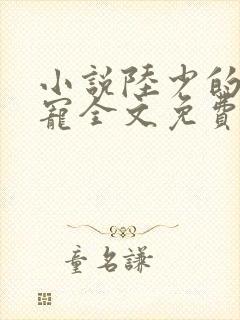 小說陸少的
寵全文免費
童名謙